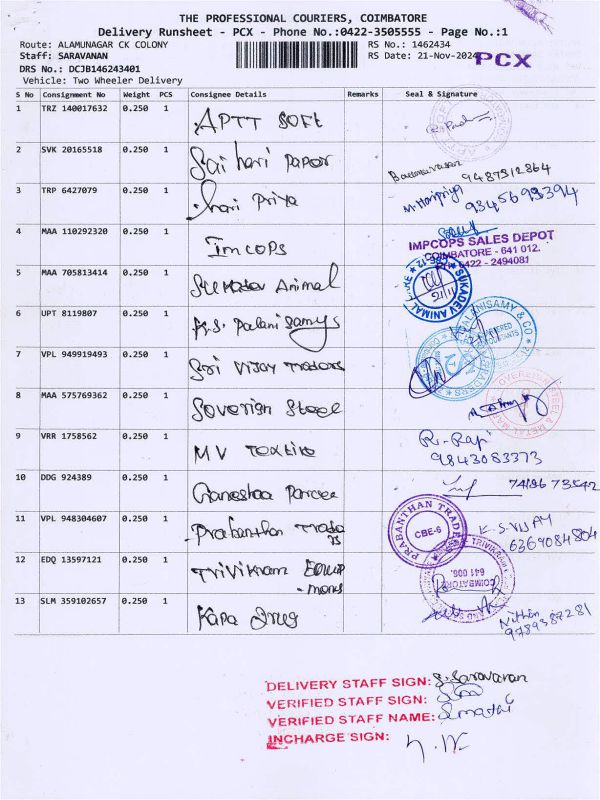 THE PROFESSIONAL COURIERS, COIMBATORE
Delivery Runsheet - PCX - Phone No.:0422-3505555 - Page No.:1
Route: ALAMUNAGAR CK COLONY RS No.: 1462434
Staff: SARAVANAN RS Date: 21-Nov-2024 PCX
DRS No.: DCJB146243401
Vehicle: Two Wheeler Delivery
S No Consignment No Weight PCS Consignee Details Remarks Seal & Signature
1 TRZ 140017632 0.250 1 APTT SOFT
2 SVK 20165518 0.250 1 Sai hari Paper 9487912864
3 TRP 6427079 0.250 1 hari Priya M. Haripriya 9345693394
4 MAA 110292320 0.250 1 Imcops
IMPCOPS SALES DEPOT
COIMBATORE - 641 012.
0422 - 2494081
5 MAA 705813414 0.250 1 Sukadev Animal SUKADEV ANIMAL
6 UPT 8119807 0.250 1 P.S. Palanisamys PALANISAMY & CO
7 VPL 949919493 0.250 1 Sri Vijay Traders
8 MAA 575769362 0.250 1 Soverign Steel
9 VRR 1758562 0.250 1 MV Textile R. Raji
9843083373
10 DDG 924389 0.250 1 Ganeshaa Parcee
11 VPL 948304607 0.250 1 Prabanthan Traders PRABANTHAN TRADERS CBE-6 K.S. VIJAY
6369084804
12 EDQ 13597121 0.250 1 Trivikram Equip
-ments COIMBATORE 641 006.
13 SLM 359102657 0.250 1 Kapa Drug Nithin
9789387281
DELIVERY STAFF SIGN: S. Saravanan
VERIFIED STAFF SIGN:
VERIFIED STAFF NAME: Sumathi
INCHARGE SIGN: